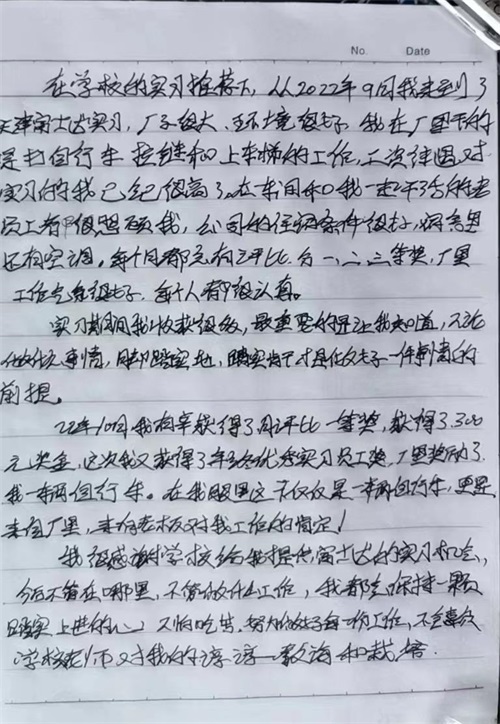 No. Date
在学校的实习推荐下,从2022年9月我来到了
天津富士达实习,厂子很大,环境很好,我在厂里干的
是打自行车拉链和上车梯的工作,工资待遇对
实习的我已经很高了,在车间和我一起干活的老
员工都很照顾我,公司的住宿条件很好,宿舍里
还有空调。每个月都会有评比,分一、二、三等奖,厂里
工作气氛很好,每个人都很认真。
实习期间我收获很多,最重要的是让我知道,无论
做什么事情,脚踏实地,踏实肯干才是做好一件事情的
前提。
22年10月我有幸获得了月评比一等奖,获得了300
元奖金,这次我又获得了年终优秀实习员工奖,厂里奖励了
我一辆自行车。在我眼里这不仅仅是一辆自行车,更是
来自厂里,来自老板对我工作的肯定!
我很感谢学校给我提供富士达的实习机会,
今后不管在哪里,不管做什么工作,我都会保持一颗
踏实上进的心,不怕吃苦,努力做好每一份工作,不会辜负
学校老师对我的谆谆教诲和栽培.